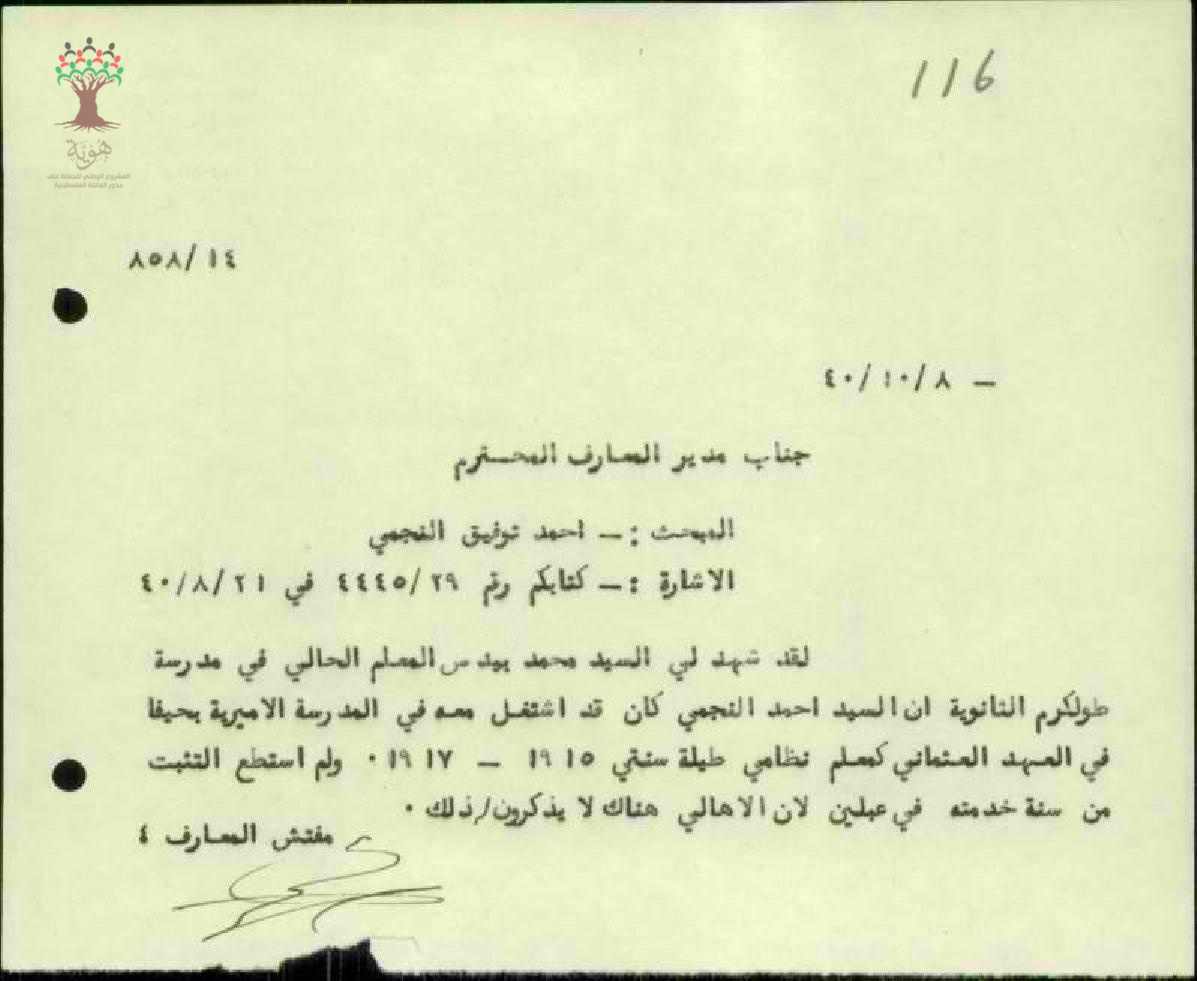 116
هوية
المشروع الوطني للحفاظ على
جذور العائلة الفلسطينية
٨٥٨/١٤
— ٤٠/١٠/٨
جناب مدير المعارف المحترم
المبحث :— احمد توفيق النجمي
الاشارة :— كتابكم رقم ٤٤٤٥/٢٩ في ٤٠/٨/٢١
لقد شهد لي السيد محمد بيدس المعلم الحالي في مدرسة
طولكرم الثانوية ان السيد احمد النجمي كان قد اشتغل معه في المدرسة الاميرية بحيفا
في العهد العثماني كمعلم نظامي طيلة سنتي ١٩١٥ — ١٩١٧ ٠ ولم استطع التثبت
من سنة خدمته في عبلين لان الاهالي هناك لا يذكرون/ذلك ٠
مفتش المعارف ٤